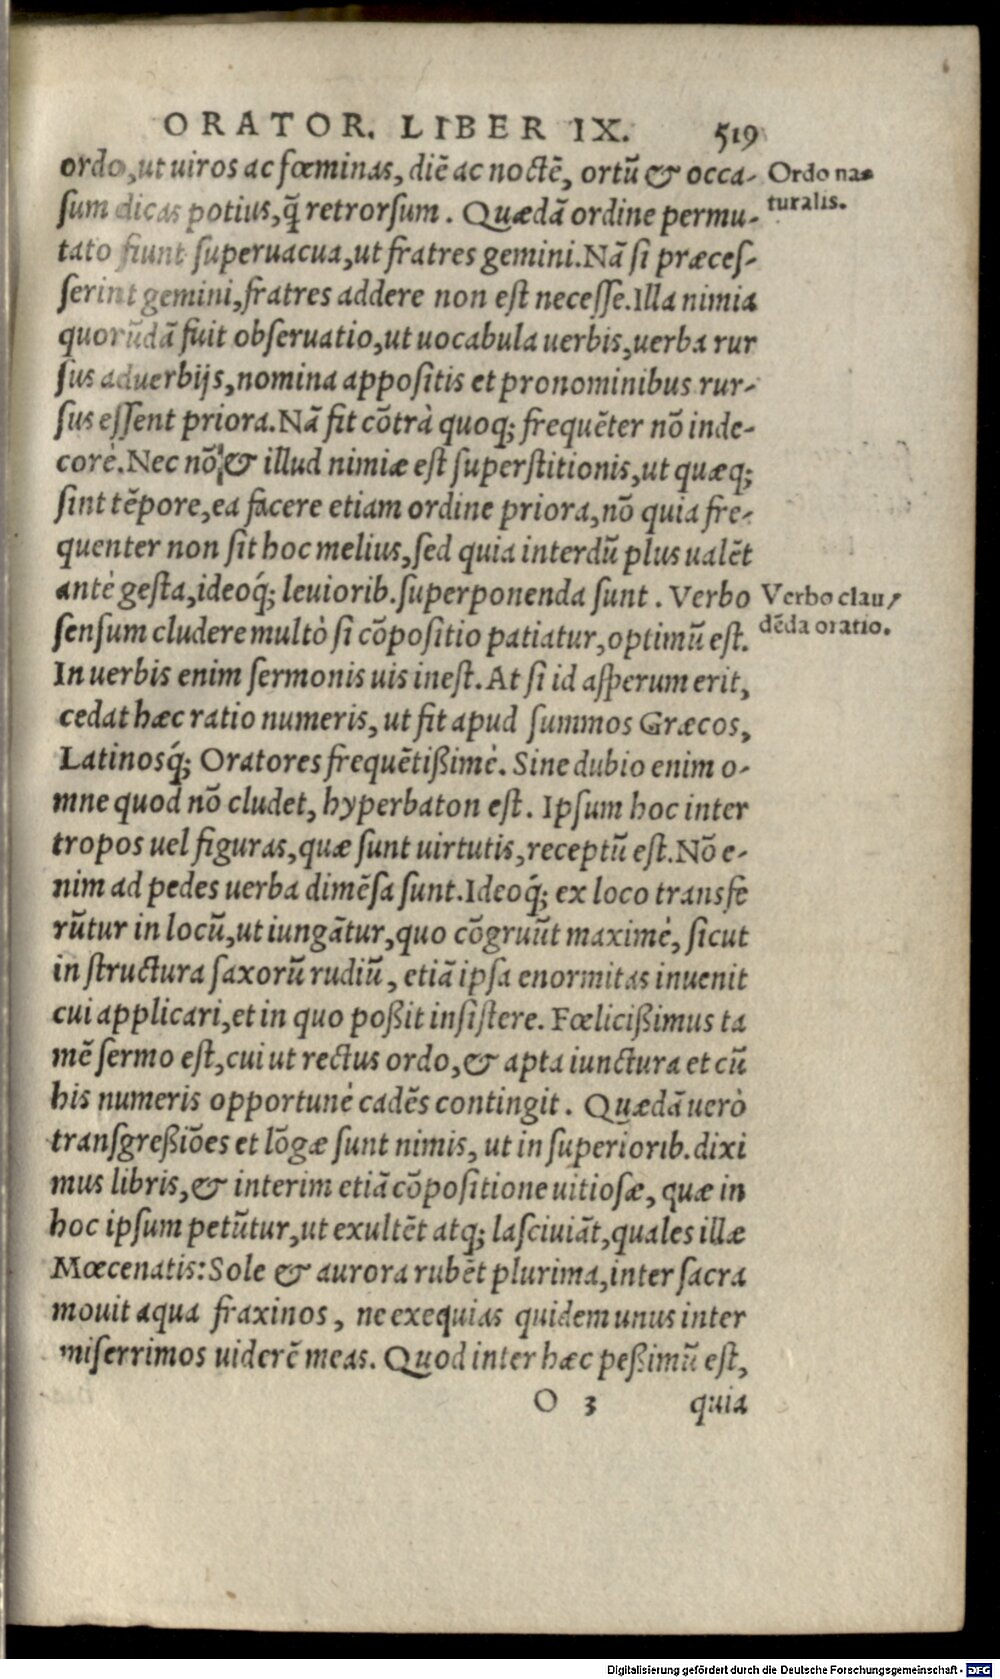 ORATOR. LIBER IX. 519
ordo, ut uiros ac fœminas, diē ac noctē, ortū & occa-
sum dicas potius, q̃ retrorsum. Quædā ordine permu-
tato fiunt superuacua, ut fratres gemini. Nā si præces-
serint gemini, fratres addere non est necesse. Illa nimia
quorūdā fuit obseruatio, ut uocabula uerbis, uerba rur
sus aduerbijs, nomina appositis et pronominibus rur-
sus essent priora. Nā fit cōtrà quoq; frequēter nō inde-
corè. Nec nō & illud nimiæ est superstitionis, ut quæq;
sint tēpore, ea facere etiam ordine priora, nō quia fre-
quenter non sit hoc melius, sed quia interdū plus ualēt
antè gesta, ideoq́; leuiorib. superponenda sunt. Verbo
sensum cludere multò si cōpositio patiatur, optimū est.
In uerbis enim sermonis uis inest. At si id asperum erit,
cedat hæc ratio numeris, ut fit apud summos Græcos,
Latinosq́; Oratores frequētißimè. Sine dubio enim o-
mne quod nō cludet, hyperbaton est. Ipsum hoc inter
tropos uel figuras, quæ sunt uirtutis, receptū est. Nō e-
nim ad pedes uerba dimēsa sunt. Ideoq́; ex loco transfe
rūtur in locū, ut iungātur, quo cōgruūt maximè, sicut
in structura saxorū rudiū, etiā ipsa enormitas inuenit
cui applicari, et in quo poßit insistere. Fœlicißimus ta
mē sermo est, cui ut rectus ordo, & apta iunctura et cū
his numeris opportunè cadēs contingit. Quædā uerò
transgreßiōes et lōgæ sunt nimis, ut in superiorib. dixi
mus libris, & interim etiā cōpositione uitiosæ, quæ in
hoc ipsum petūtur, ut exultēt atq; lasciuiāt, quales illæ
Mœcenatis: Sole & aurora rubēt plurima, inter sacra
mouit aqua fraxinos, ne exequias quidem unus inter
miserrimos uiderē meas. Quod inter hæc peßimū est,
O 3 quia
Ordo na-
turalis.
Verbo clau/
dēda oratio.
Digitalisierung gefördert durch die Deutsche Forschungsgemeinschaft - DFG